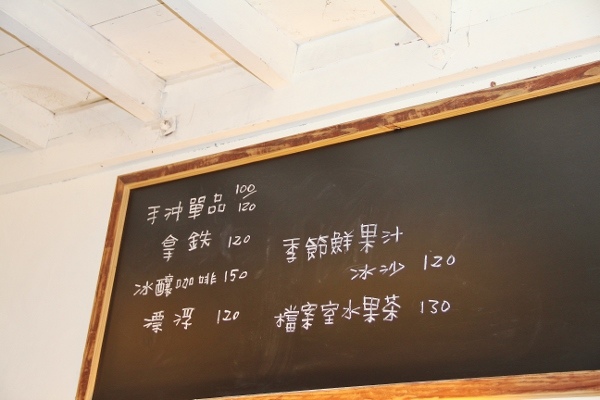 手沖單品 100/120
拿鉄 120
冰釀咖啡 150
漂浮 120
季節鮮果汁
冰沙 120
檔案室水果茶 130